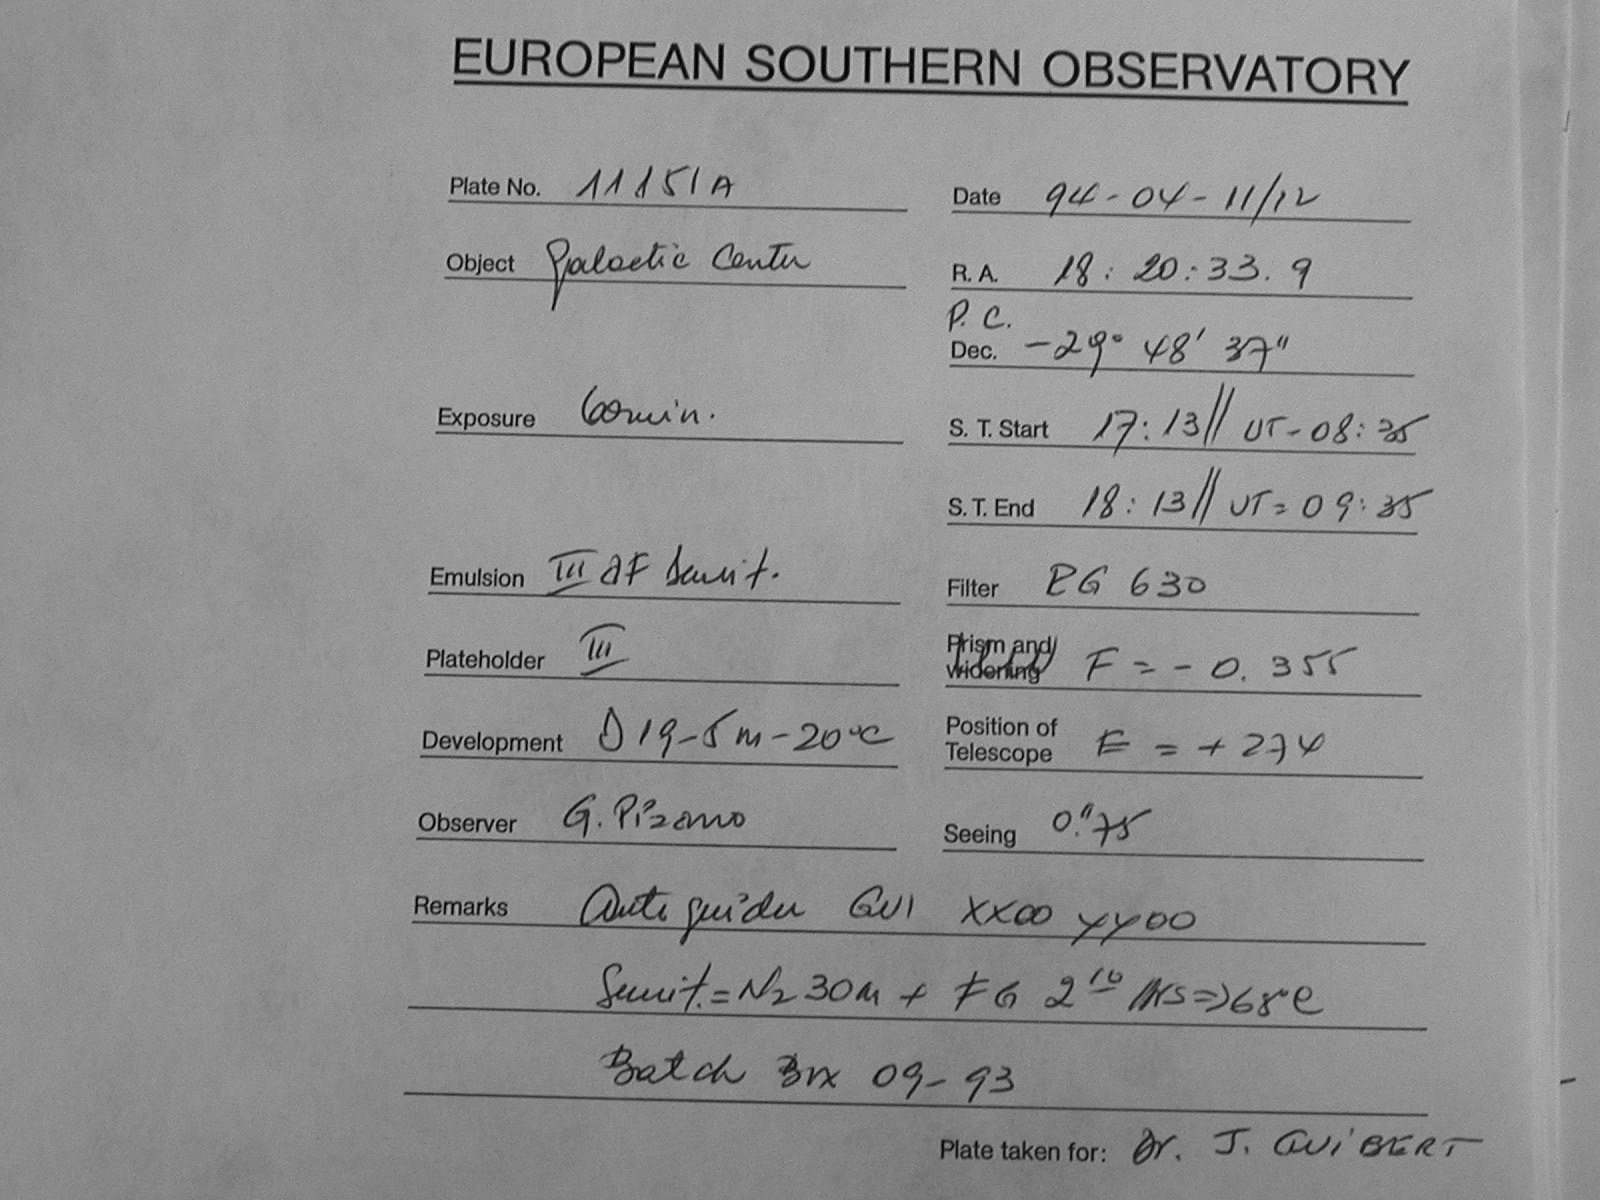 EUROPEAN SOUTHERN OBSERVATORY
Plate No. 11151A
Date 94-04-11/12
Object Galactic Center
R. A. 18: 20:33. 9
P. C.
Dec. -29° 48' 37"
Exposure 60min.
S. T. Start 17:13// UT-08:35
S. T. End 18:13// UT=09:35
Emulsion III aF Sensit.
Filter RG 630
Plateholder III
Prism and widening F = - 0. 355
Development D19-5m-20°C
Position of Telescope E = +274
Observer G. Pizarro
Seeing 0."75
Remarks Autoguider GUI XX00 YY00
Sensit.=N2 30m + FG 2 10 HRS=>68°C
Batch 09-93
Plate taken for: Dr. J. GUIBERT